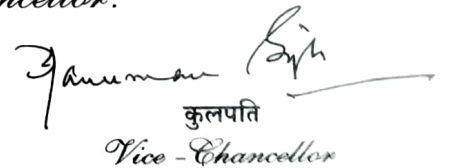 ncellor.
Singh
कुलपति
Vice - Chancellor